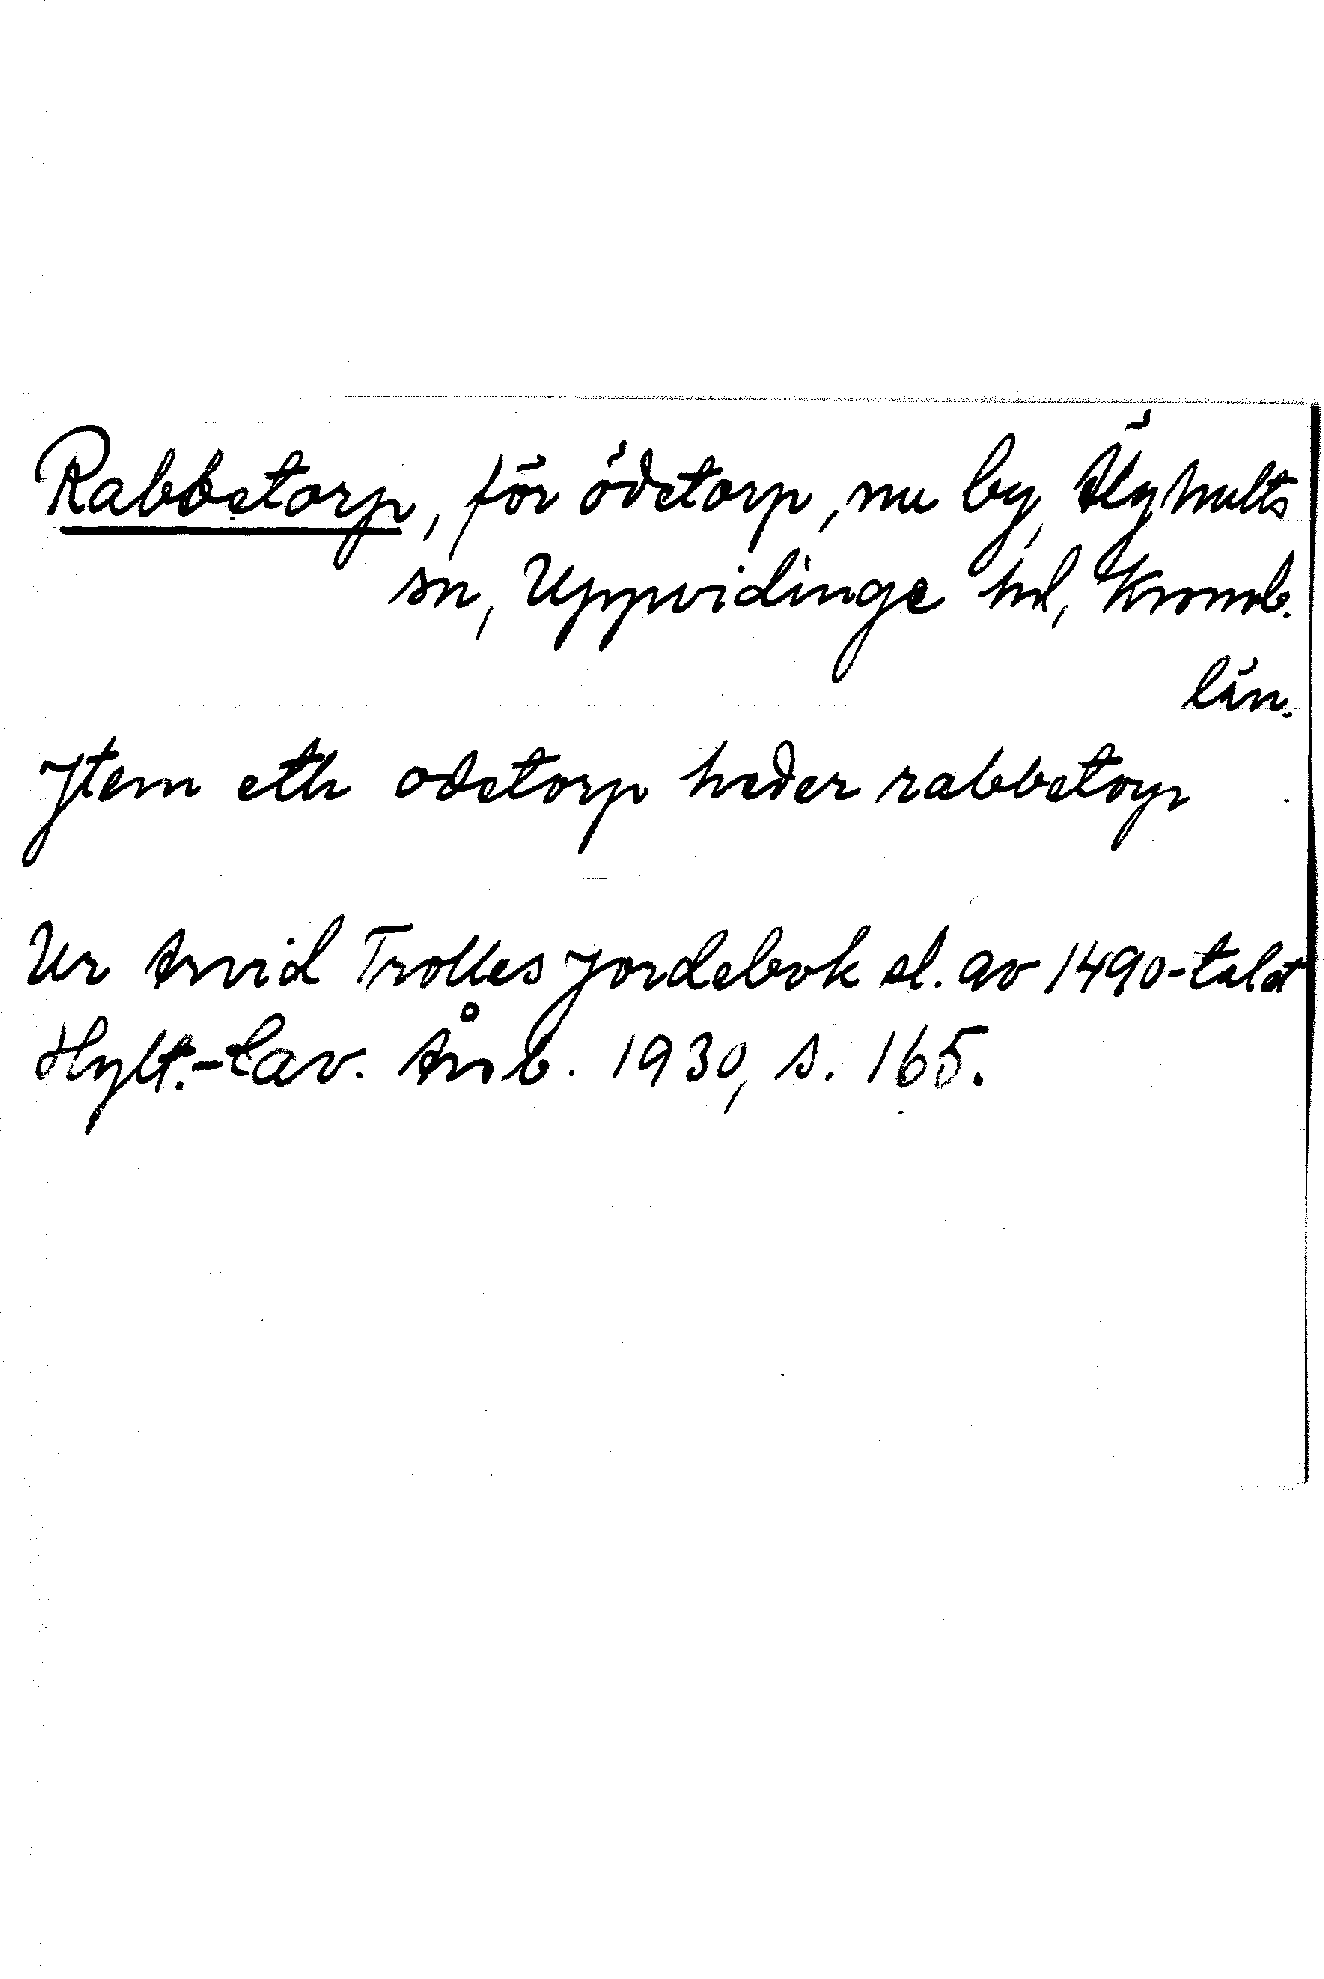 Rabbetorp, för ödetorp, nu by, Älghults
sn, Uppvidinge hd, Kronob.
län.
Jtem eth odetorp heder rabbetorp
Ur Arvid Trolles Jordebok sl. av 1490-talet
Hylt.-Cav. Årsb. 1930, s. 165.